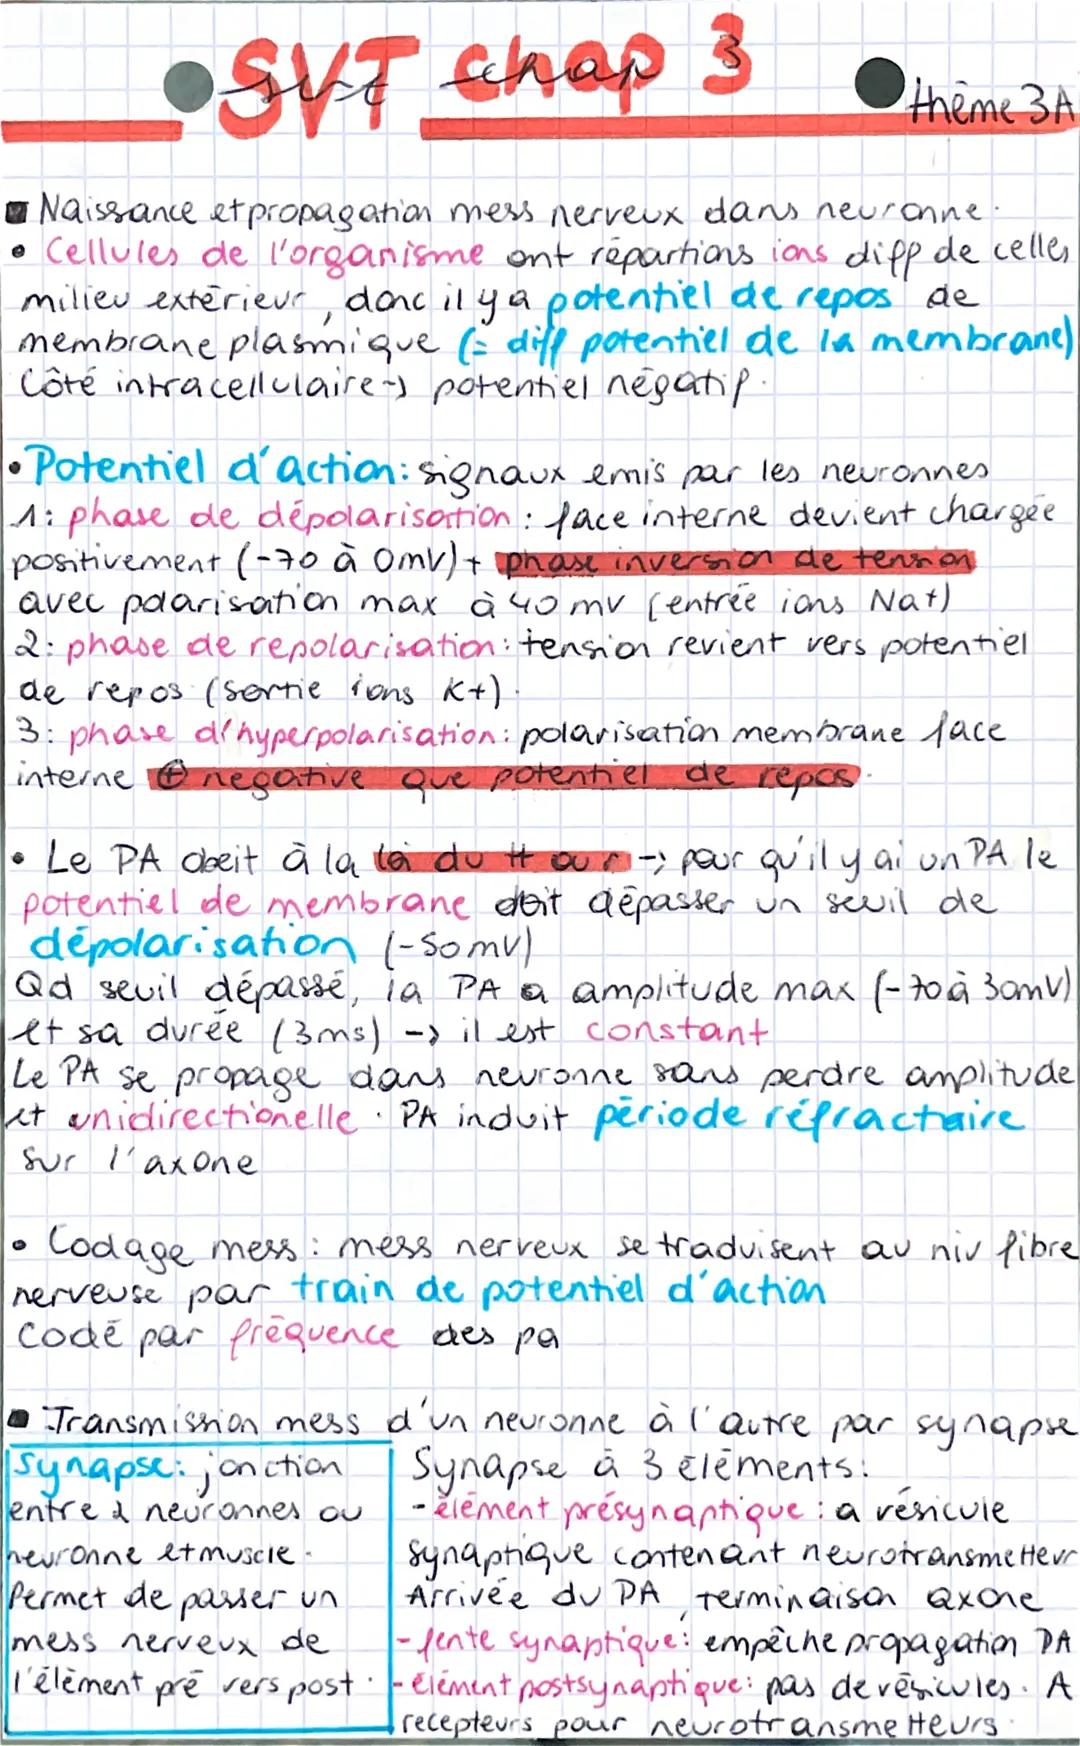 SVT chap 3
svt chap 3
thème 3A
Naissance et propagation mess nerveux dans neuronne.
• Cellules de l'organisme ont répartions ions diff de celles
milieu extérieur, donc il y a potentiel de repos de
membrane plasmique (= diff potentiel de la membrane)
Côté intracellulaire -> potentiel négatif.
• Potentiel d'action: signaux emis par les neuronnes
1: phase de dépolarisation : face interne devient chargée
positivement (-70 à 0mV) + phase inversion de tension
avec polarisation max à 40 mv (entrée ions Na+)
2: phase de repolarisation: tension revient vers potentiel
de repos (sortie ions K+).
3: phase d'hyperpolarisation: polarisation membrane face
interne ⊕ negative que potentiel de repos.
• Le PA obeit à la loi du tt ou r -> pour qu'il y ai un PA le
potentiel de membrane doit dépasser un seuil de
dépolarisation (-50mV)
Qd seuil dépassé, la PA a amplitude max (-70 à 30mV)
et sa durée (3ms) -> il est constant
Le PA se propage dans neuronne sans perdre amplitude
et unidirectionelle. PA induit période réfractaire
sur l'axone
• Codage mess : mess nerveux se traduisent au niv fibre
nerveuse par train de potentiel d'action
Codé par fréquence des pa
Transmission mess d'un neuronne à l'autre par synapse
Synapse: jonction
entre 2 neuronnes ou
neuronne et muscle.
Permet de passer un
mess nerveux de
l'élément pré vers post.
Synapse à 3 éléments:
- élément présynaptique : a vésicule
synaptique contenant neurotransmetteur
Arrivée du PA, terminaison axone
- fente synaptique: empêche propagation PA
- élément postsynaptique: pas de vésicules. A
recepteurs pour neurotransmetteurs.